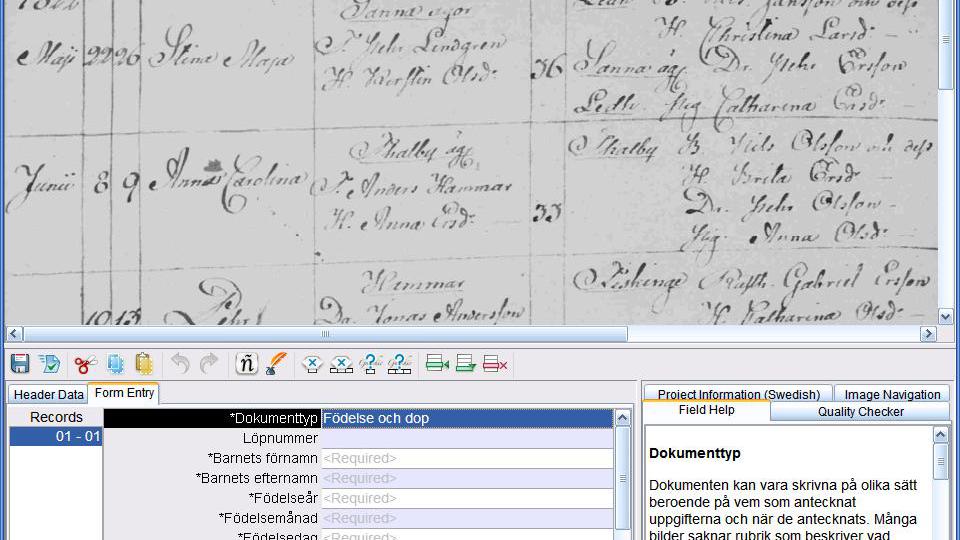 Sanna ägor
H. Christina Larsd:
Maji 22 26 Stina Maja
P. Lindgren
H. Kerstin Olsd:
36 Sanna äg: Dr. Ersson
Pig Catharina Ersd:
Junii 8 9 Anna Carolina
Skalby äg:
Anders Hammar
H. Anna Ersd:
33
Skalby B. Nils Olsson
H. Brita Ersd:
Dr. Olsson
Pig Anna Olsd:
Hemmar
Da. Jonas Andersson
Gabriel Ersson
H. Catharina Olsd:
Header Data
Form Entry
Records
01 - 01
*Dokumenttyp Födelse och dop
Löpnummer
*Barnets förnamn <Required>
*Barnets efternamn <Required>
*Födelseår <Required>
*Födelsemånad <Required>
*Födelsedag <Required>
Project Information (Swedish)
Image Navigation
Field Help
Quality Checker
Dokumenttyp
Dokumenten kan vara skrivna på olika sätt
beroende på vem som antecknat
uppgifterna och när de antecknats. Många
bilder saknar rubrik som beskriver vad